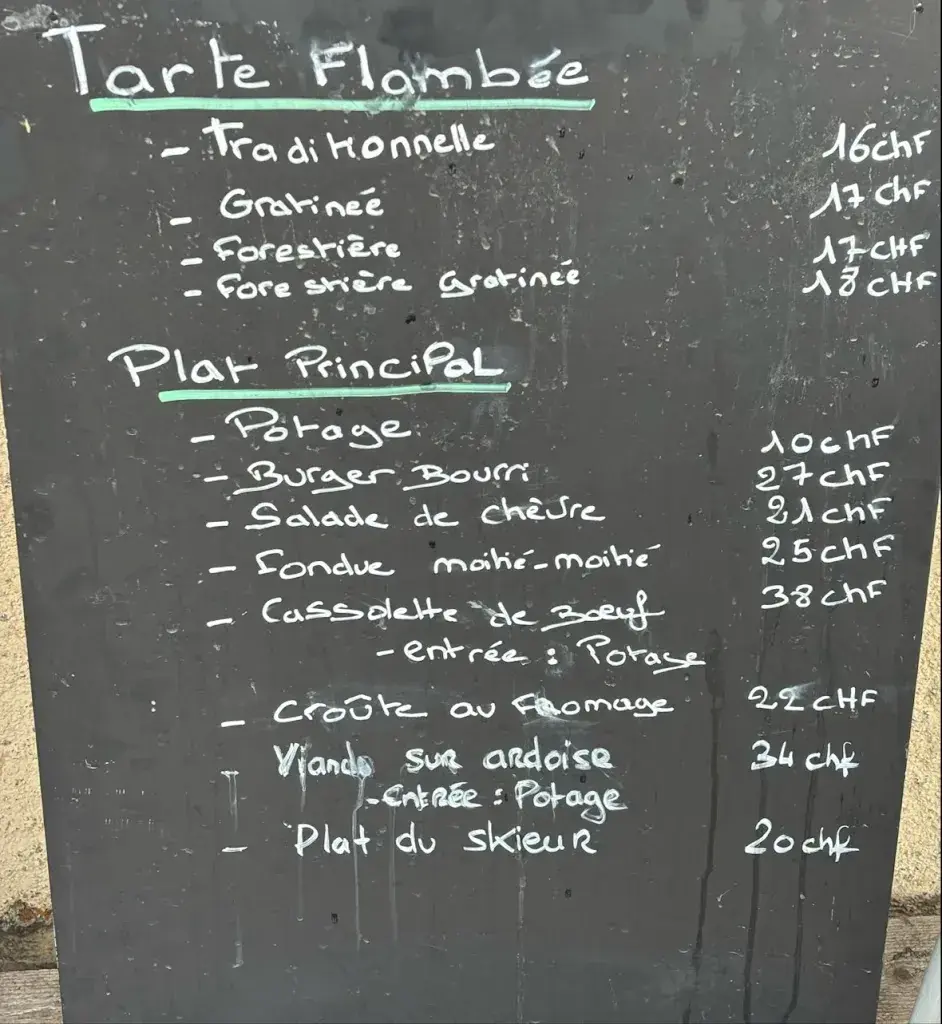 Tarte Flambée
- Traditionnelle 16chF
- Gratineé 17chF
- Forestière 17CHF
- Forestière Gratinée 18CHF
Plat Principal
- Potage 10chF
- Burger Bourri 27chF
- Salade de chèvre 21chF
- Fondue moitié-moitié 25chF
- Cassolette de Boeuf 38chF
- entrée : Potage
- Croûte au Fromage 22CHF
- Viande sur ardoise 34chf
- Entrée : Potage
- Plat du skieur 20chf